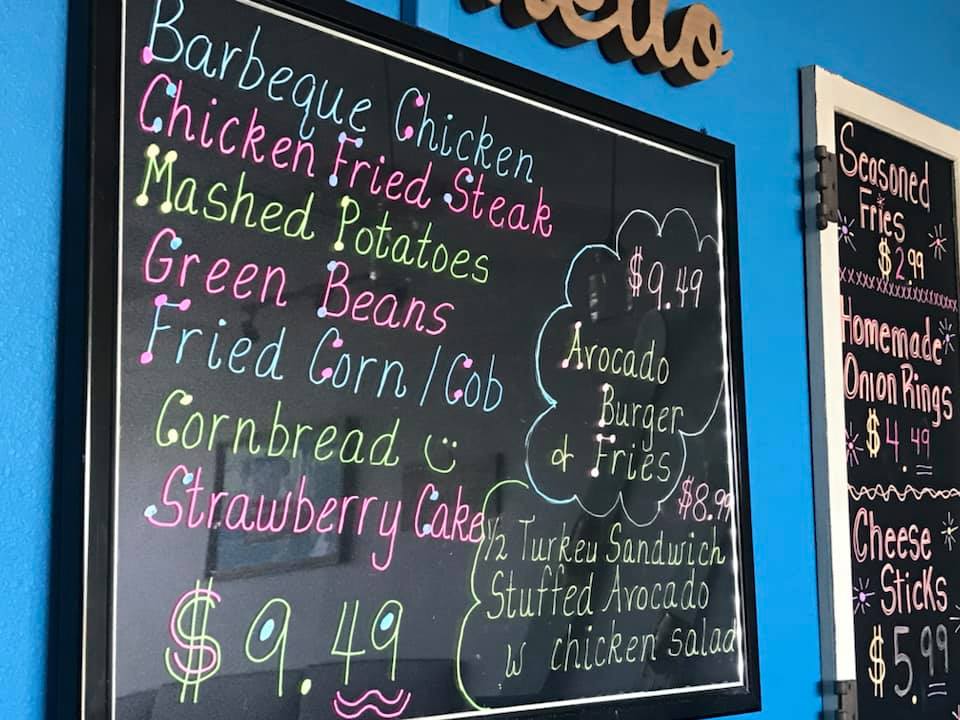 hello
Barbeque Chicken
Chicken Fried Steak
Mashed Potatoes
Green Beans
Fried Corn / Cob
Cornbread
Strawberry Cake
$9.49
$9.49
Avocado
Burger
& Fries
$8.99
1/2 Turkey Sandwich
Stuffed Avocado
w chicken salad
Seasoned
Fries
$2.99
Homemade
Onion Rings
$4.49
Cheese
Sticks
$5.99